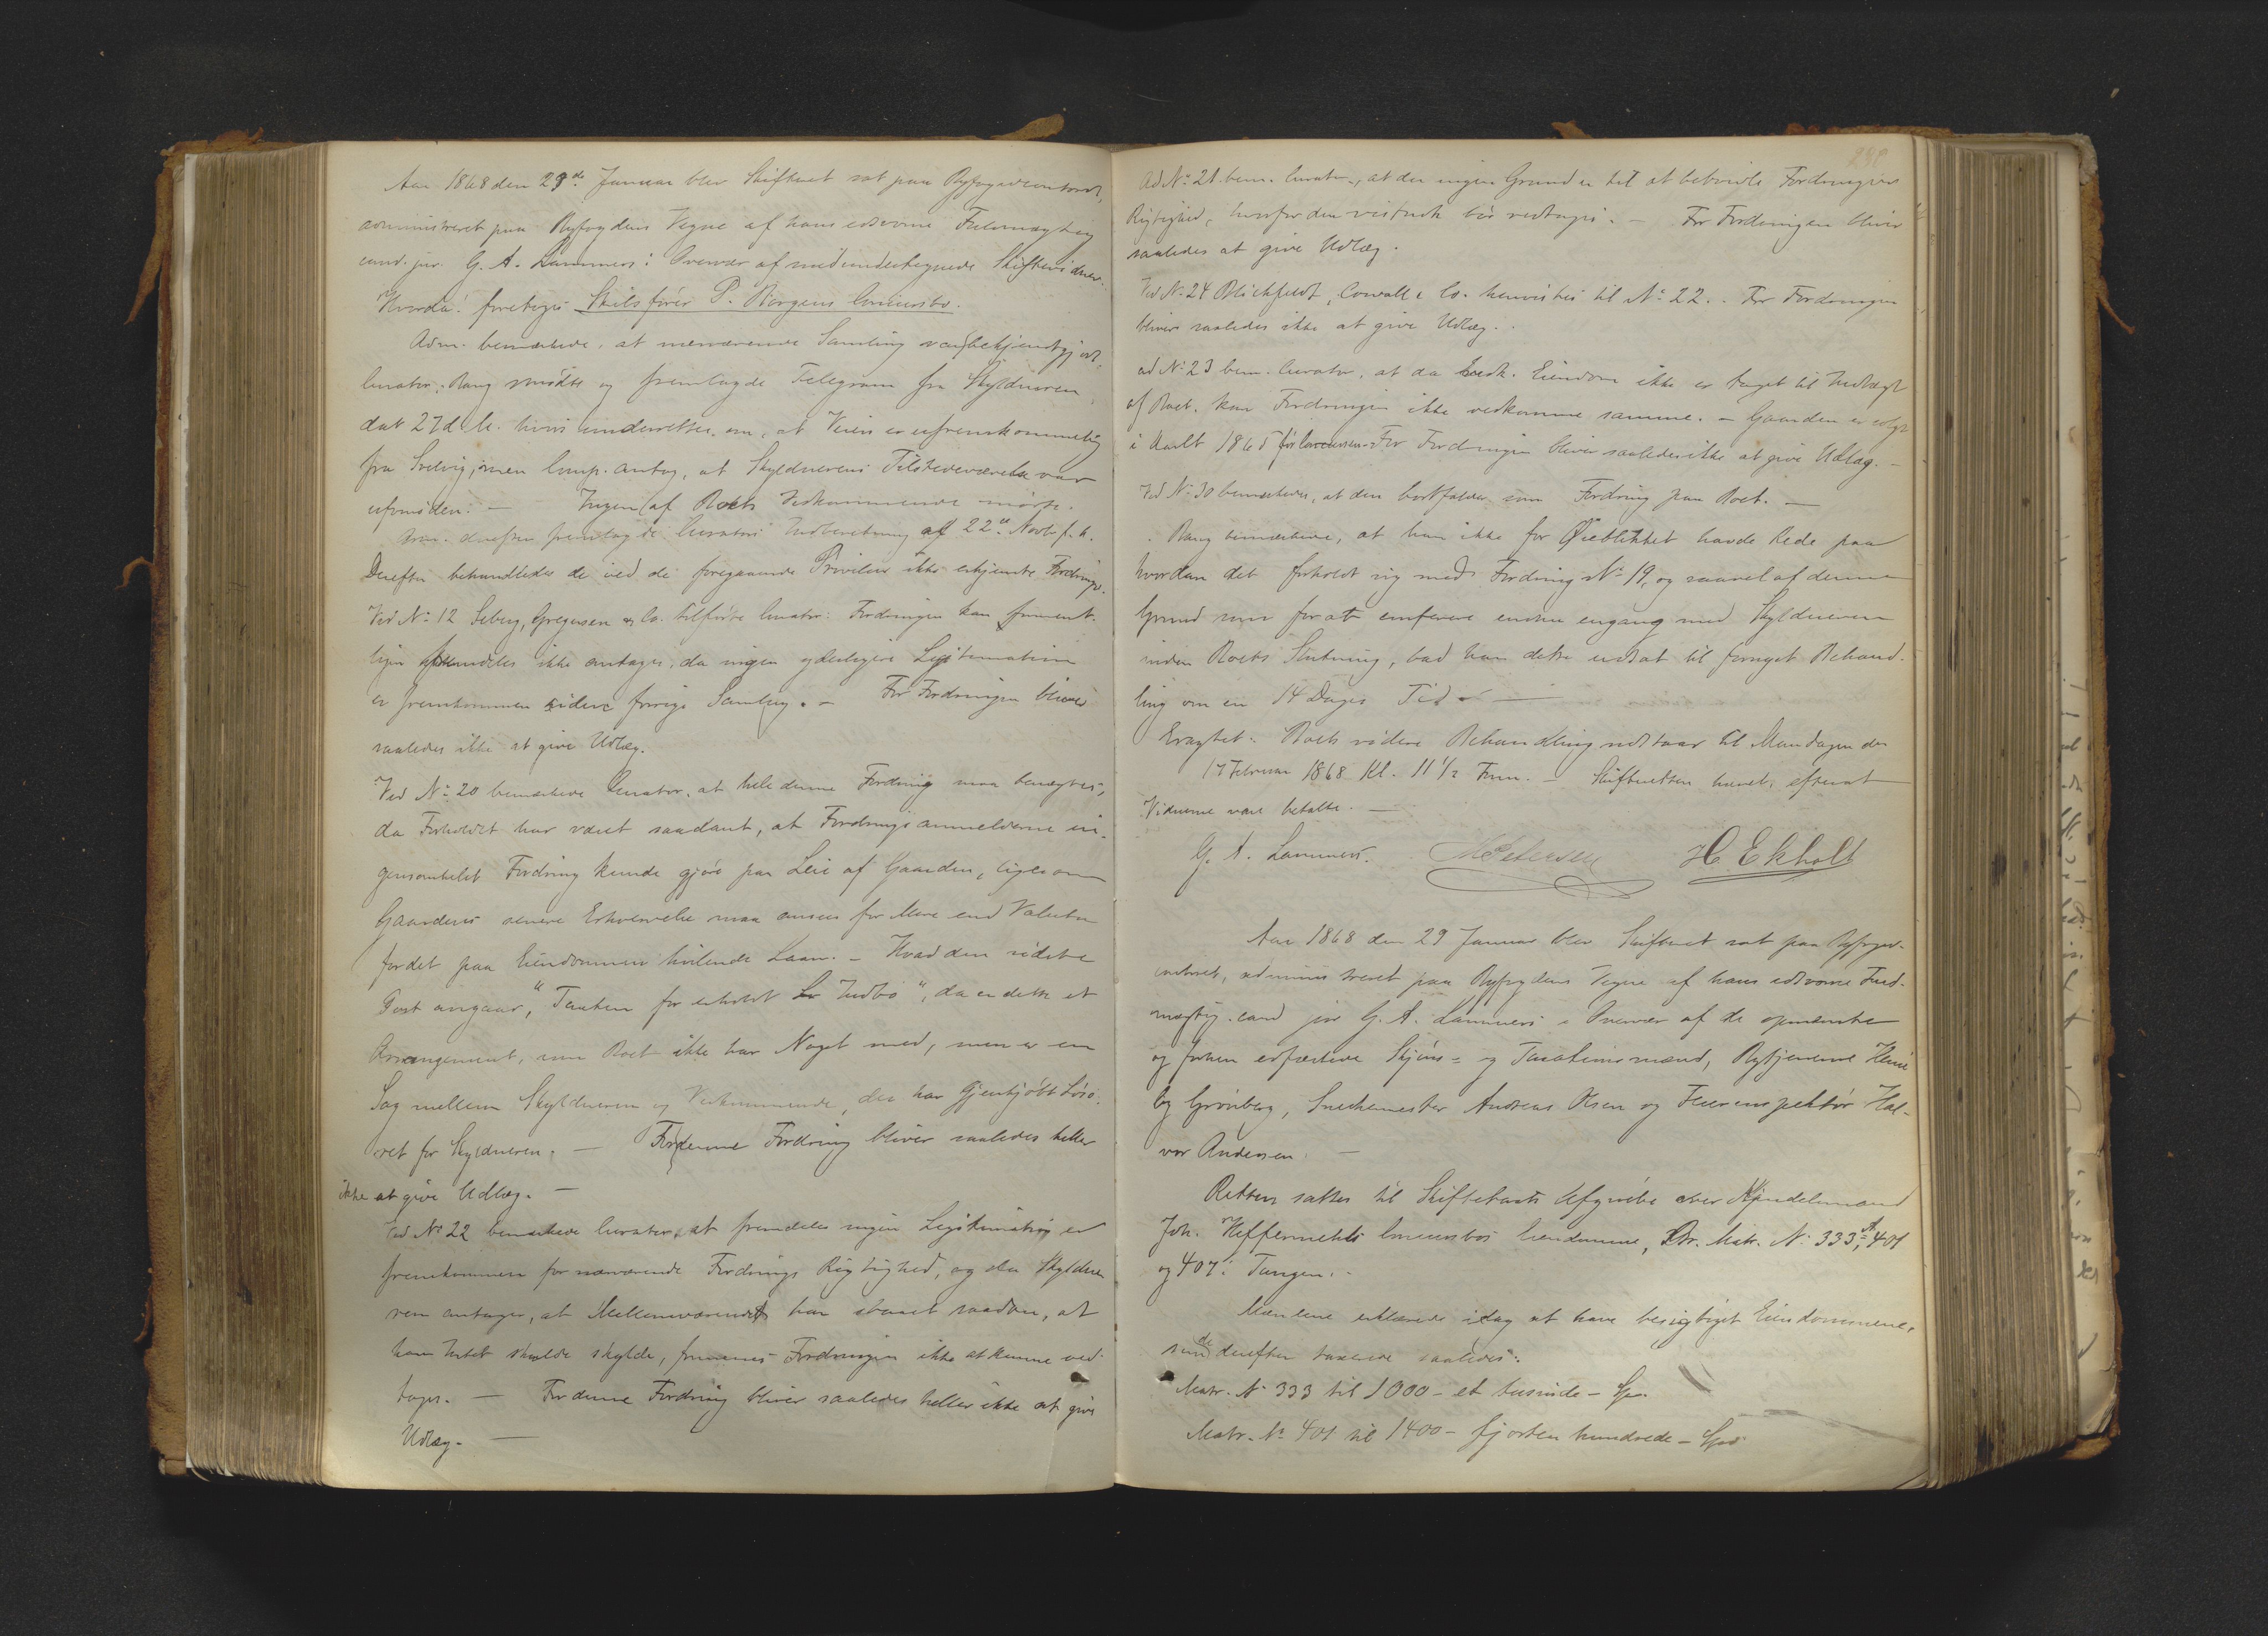 Aar 1868 den 29de Januar blev Skifteret sat paa Byfogedcontoret,
administreret paa Byfogdens Vegne af hans edsvorne Fuldmægtig
cand. jur. G. A. Lammers i Overvær af medundertegnede Skiftevidner.
Hvorda: foretoges Skibsfører P. Börgens Concursbo.
Adm. bemærkede, at nærværende Samling var bekjendtgjort.
Curator, Bang mödte og fremlagde Telegram fra Skyldneren
dat 27 d. M. hvori underrettes om, at Veien er ufremkommelig
fra Svelvig, men Comp. antog, at Skyldnerens Tilstedeværelse var
ufornöden. — Ingen af Boets Vedkommende mödte.
Adm. derefter fremlagde Curators Indberetning af 22de Novb. f. A.
Derefter behandledes de ved de foregaaende Prövelser ikke erkjendte Fordringer.
Ved No 12 Seberg, Gregersen & Co. tilförte Curator: Fordringen kan forment-
ligen fremdeles ikke antages, da ingen yderligere Legitimation
er fremkommen siden forrige Samling. — For Fordringen bliver
saaledes ikke at give Udlæg.
Ved No 20 bemærkede Curator, at hele denne Fordring maa benægtes,
da Forholdet har været saadant, at Fordringsanmelderne in-
gensomhelst Fordring kunde gjöre paa Leie af Gaarden, ligesom
Gaardens senere Erhvervelse maa ansees for Mere end Valuta
for det paa Eiendommen hvilende Laan. — Hvad den sidste
Post angaar, "Tanten for erholdt Indbo", da er dette et
Arrangement, som Boet ikke har Noget med, men er en
Sag mellem Skyldneren og Vedkommende, der har Gjenkjöbt Lösö-
ret for Skyldneren. — For denne Fordring bliver saaledes heller
ikke at give Udlæg. —
Ved No 22 bemærkede Curator, at fremdeles ingen Legitimation er
fremkommen for nærværende Fordrings Rigtighed, og da Skyldne-
ren antager, at Mellemværendet har staaet saadan, at
han Intet skulde skylde, formenes Fordringen ikke at kunne ved-
tages. — For denne Fordring bliver saaledes heller ikke at give
Udlæg. —
Ad No 21 bem. Curator, at der ingen Grund er til at betvivle Fordringens
Rigtighed, hvorfor den bör vedtages. — For Fordringen bliver
saaledes at give Udlæg.
Ved No 24 Blichfeldt, & Co. henvistes til No 22. For Fordringen
bliver saaledes ikke at give Udlæg.
ad No 23 bem. Curator, at da Eiendom ikke er taget til Indtægt
af Boet, kan Fordringen ikke vedkomme samme. — Gaarden er solgt
i 1865 för Concursen. For Fordringen bliver saaledes ikke at give Udlæg. —
Ved No 30 bemærkedes, at den bortfalder som Fordring paa Boet. —
Bang bemærkede, at han ikke for Öieblikket havde Rede paa
hvordan det forholdt sig med Fordring No 19, og saavel af denne
Grund som for at conferere endnu engang med Skyldneren
inden Boets Slutning, bad han dette udsat til fornyet Behand-
ling om en 14 Dages Tid. —
Eragtet: Boets videre Behandling udstaar til Mandagen den
17 Februar 1868 Kl. 11 1/2 Form. — Skifteretten hævet, efterat
Vidnerne vare betalte. —
G. A. Lammers. M Petersen H C Ekholt
Aar 1868 den 29 Januar blev Skifteret sat paa Byfoged-
contoret, administreret paa Byfogdens Vegne af hans edsvorne Fuld-
mægtig, cand jur G. A. Lammers i Overvær af de opnævnte
og forhen edfæstede Skjöns- og Taxationsmænd, Bytjenerne
Grönberg, Snedkermester Andreas Olsen og Hal-
vor Andersen. —
Retten sattes til Skiftetaxts Afgivelse over Handelsmand
Joh. Heffermehls Concursbos Eiendomme, Br. Matr. No 333A, 401
og 407 i Tangen. —
Mændene erklærede idag at have besigtiget Eiendommene,
som de derefter taxerede saaledes:
Matr. No 333 til 1000 — et tusinde — Spd.
Matr. No 401 til 1400 — fjorten hundrede — Spd